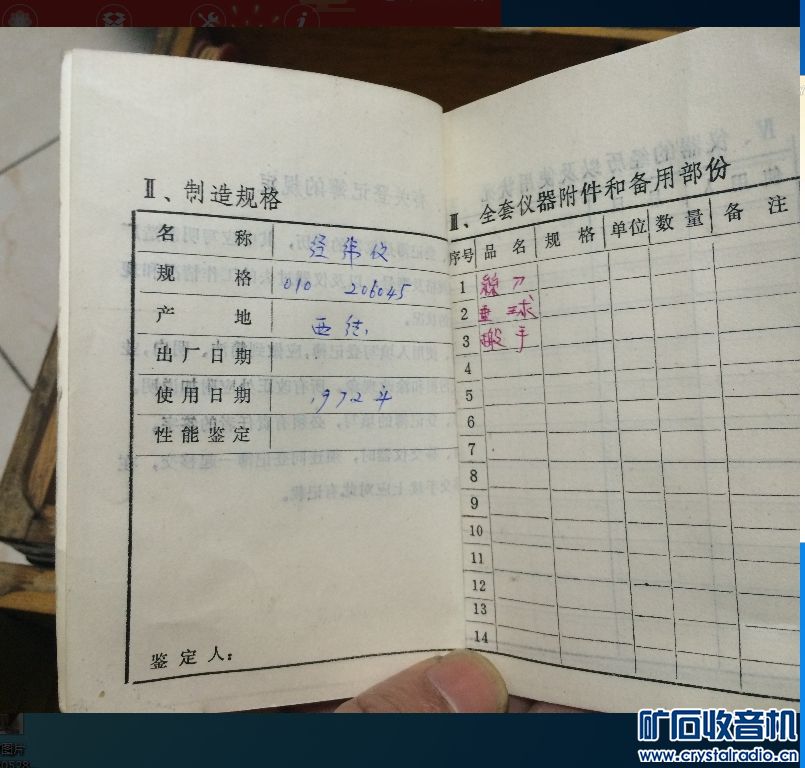 Ⅱ、制造规格
名 称 经纬仪
规 格 010 206045
产 地 西德
出厂日期
使用日期 1972年
性能鉴定
鉴定人：
Ⅲ、全套仪器附件和备用部份
序号 品名 规格 单位 数量 备注
1
2 垂球
3 搬手
4
5
6
7
8
9
10
11
12
13
14
矿石收音机
www.crystalradio.cn
图片